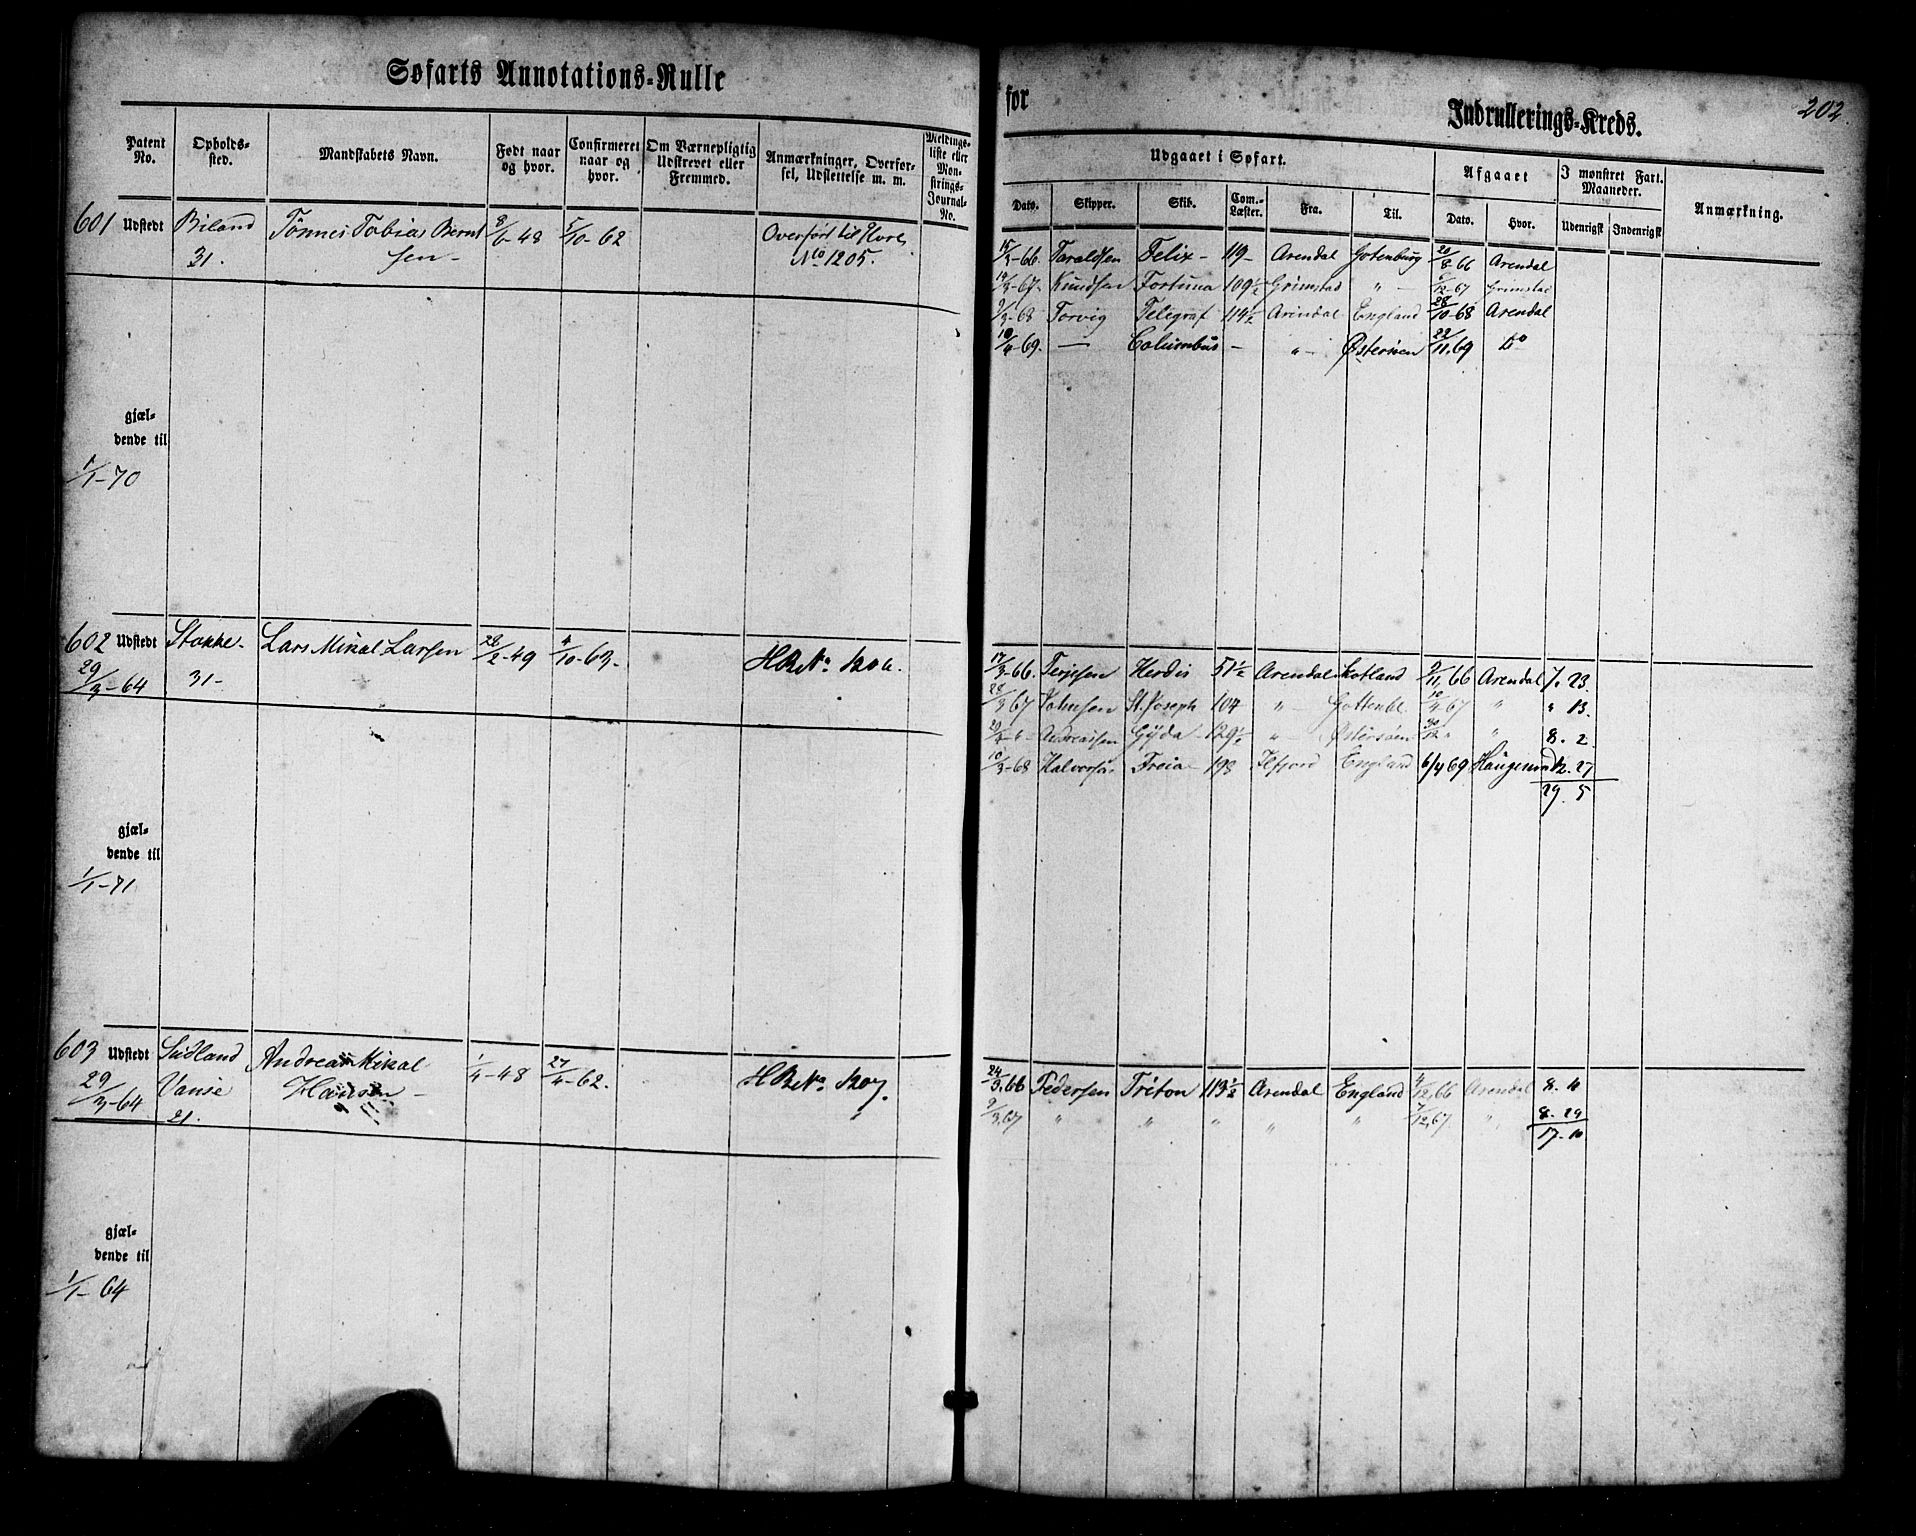 Søfarts Annotations-Rulle
Patent No.
Opholds-sted.
Mandskabets Navn.
Født naar og hvor.
Confirmeret naar og hvor.
Om Værnepligtig Udskrevet eller Fremmed.
Anmærkninger, Overfør-sel, Udslettelse m. m.
Meldings-liste eller Mon-strings-Journal-No.
601 Udstedt Biland Tönnes Tobias Bernt 8/6-48 5/10-62 Overført til
31. sen- No 1205.
gjæl-
dende til
1/1-70
602 Udstedt Stokke- Lars Mikal Larsen 28/2-49 4/10-63- HR No 1206.
29/3-64 31-
gjæl-
dende til
1/1-71
603 Udstedt Sudland Andreas Mikal 1/4-48 27/4-62. HR No 1207.
29/3-64 Vanse Hansen -
21.
gjæl-
dende til
1/1-64
for Indrullerings-Kreds. 202.
Udgaaet i Søfart.
Afgaaet
I mønstret Fart. Maaneder.
Anmærkning.
Dato. Skipper. Skib. Com.-Læster. Fra. Til. Dato. Hvor. Udenrigsk Indenrigsk
15/3-66. Taraldsen Felix- 119- Arendal Gotenburg 20/8-66 Arendal
14/3-67- Knudsen Fortuna 109½ Grimstad " - 6/12-67 Grimstad
9/3-68 Torvig Telegraf 114½ Arendal England 28/10-68 Arendal
10/4-69. — Columbus - " - Østersøen 22/11.69 Do
17/3-66. Terjesen Herdis 51½ Arendal Skotland 9/11.66 Arendal 7. 23.
28/3 67 Johnsen St. Joseph 104 " - Gottenb. 10/4 67 " " 13.
20/4 - " - Andreassen Gyda - 129½ " - Østersøen 30/12 " " 8. 2
10/3-68 Halvorsen Freia 198 England 6/4 69 Haugesund 12. 27
29. 5
24/3.66 Pedersen Triton 113½ Arendal England 4/12.66 Arendal 8. 11
9/3.67 " " " " " 7/12.67 " 8. 29
17-10